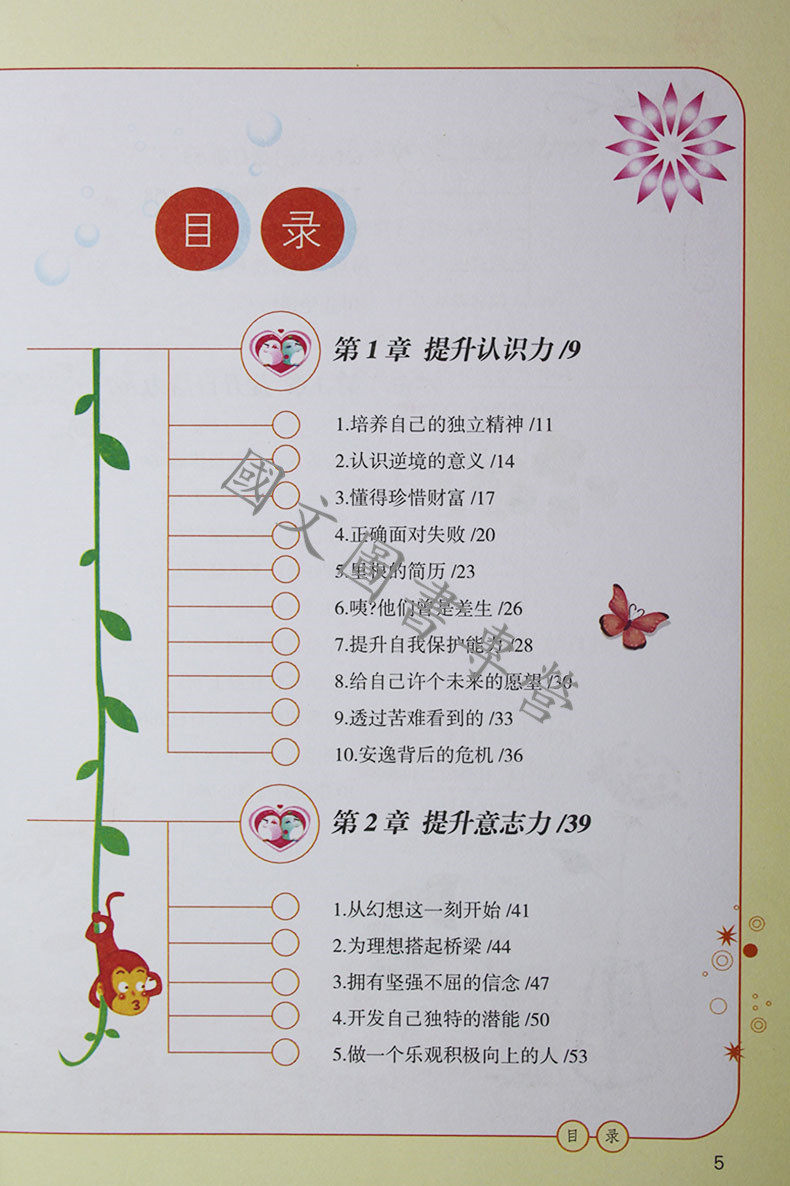 目录
第1章 提升认识力/9
1.培养自己的独立精神/11
2.认识逆境的意义/14
3.懂得珍惜财富/17
4.正确面对失败/20
5.里根的简历/23
6.咦?他们曾是差生/26
7.提升自我保护能力/28
8.给自己许个未来的愿望/30
9.透过苦难看到的/33
10.安逸背后的危机/36
第2章 提升意志力/39
1.从幻想这一刻开始/41
2.为理想搭起桥梁/44
3.拥有坚强不屈的信念/47
4.开发自己独特的潜能/50
5.做一个乐观积极向上的人/53
國文圖書專營
目录
5